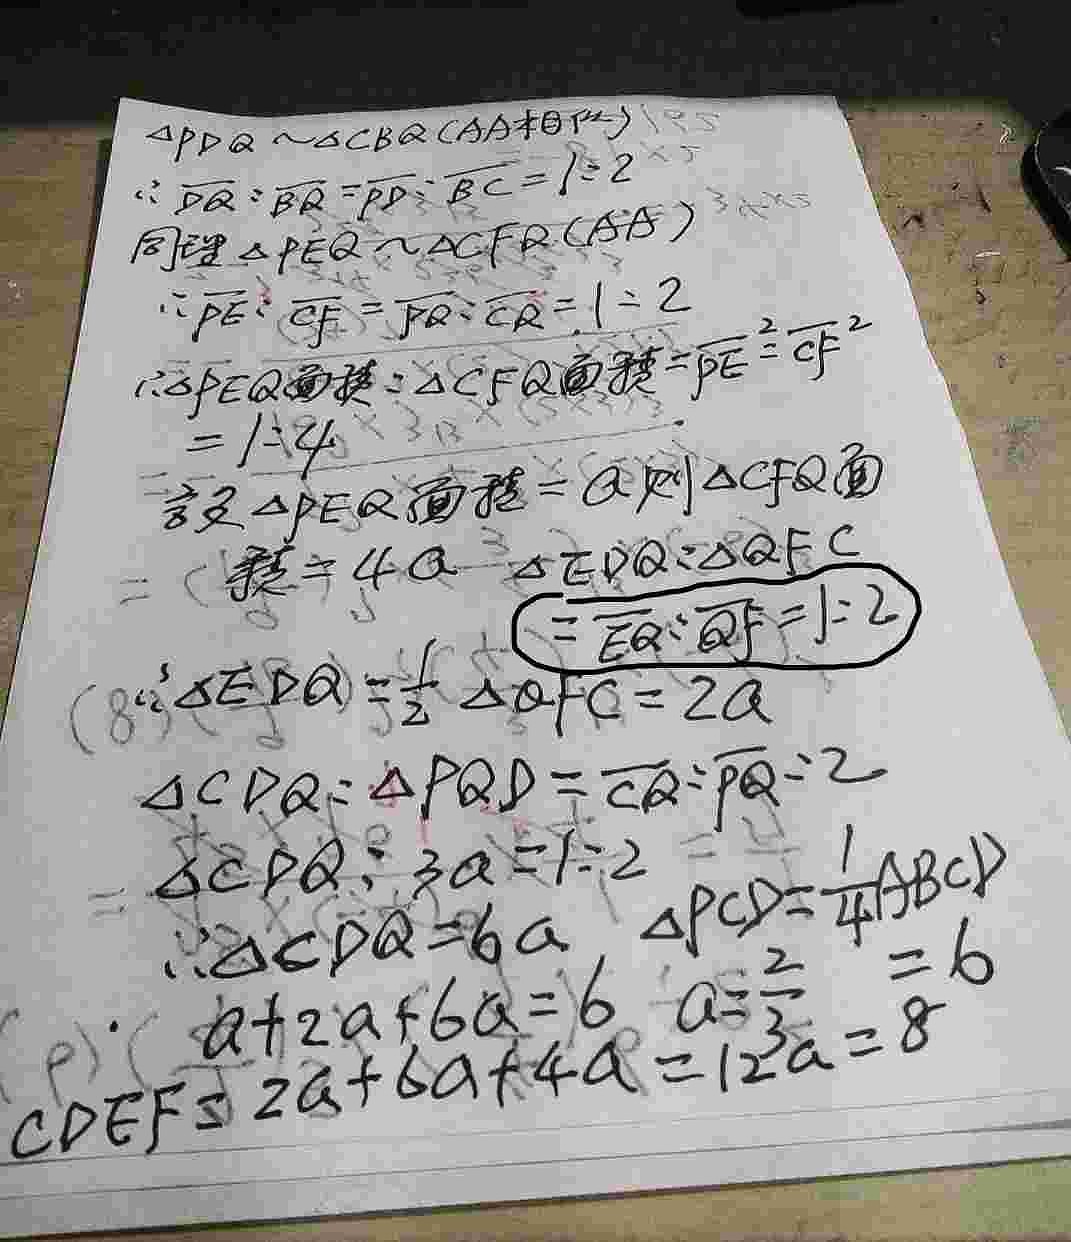 △PDQ~△CBQ(AA相似)
∴DQ:BQ=PD:BC=1:2
同理△PEQ~△CFQ(AA)
∴PE:CF=PQ:CQ=1:2
∴△PEQ面積:△CFQ面積=PE²:CF²
=1:4
設△PEQ面積=a則△CFQ面
積=4a △EDQ:△QFC
=EQ:QF=1:2
∴△EDQ=1/2△QFC=2a
△CDQ:△PQD=CQ:PQ=2
△CDQ:3a=1:2
∴△CDQ=6a △PCD=1/4ABCD
=6
a+2a+6a=6 a=2/3
CDEF=2a+6a+4a=12a=8